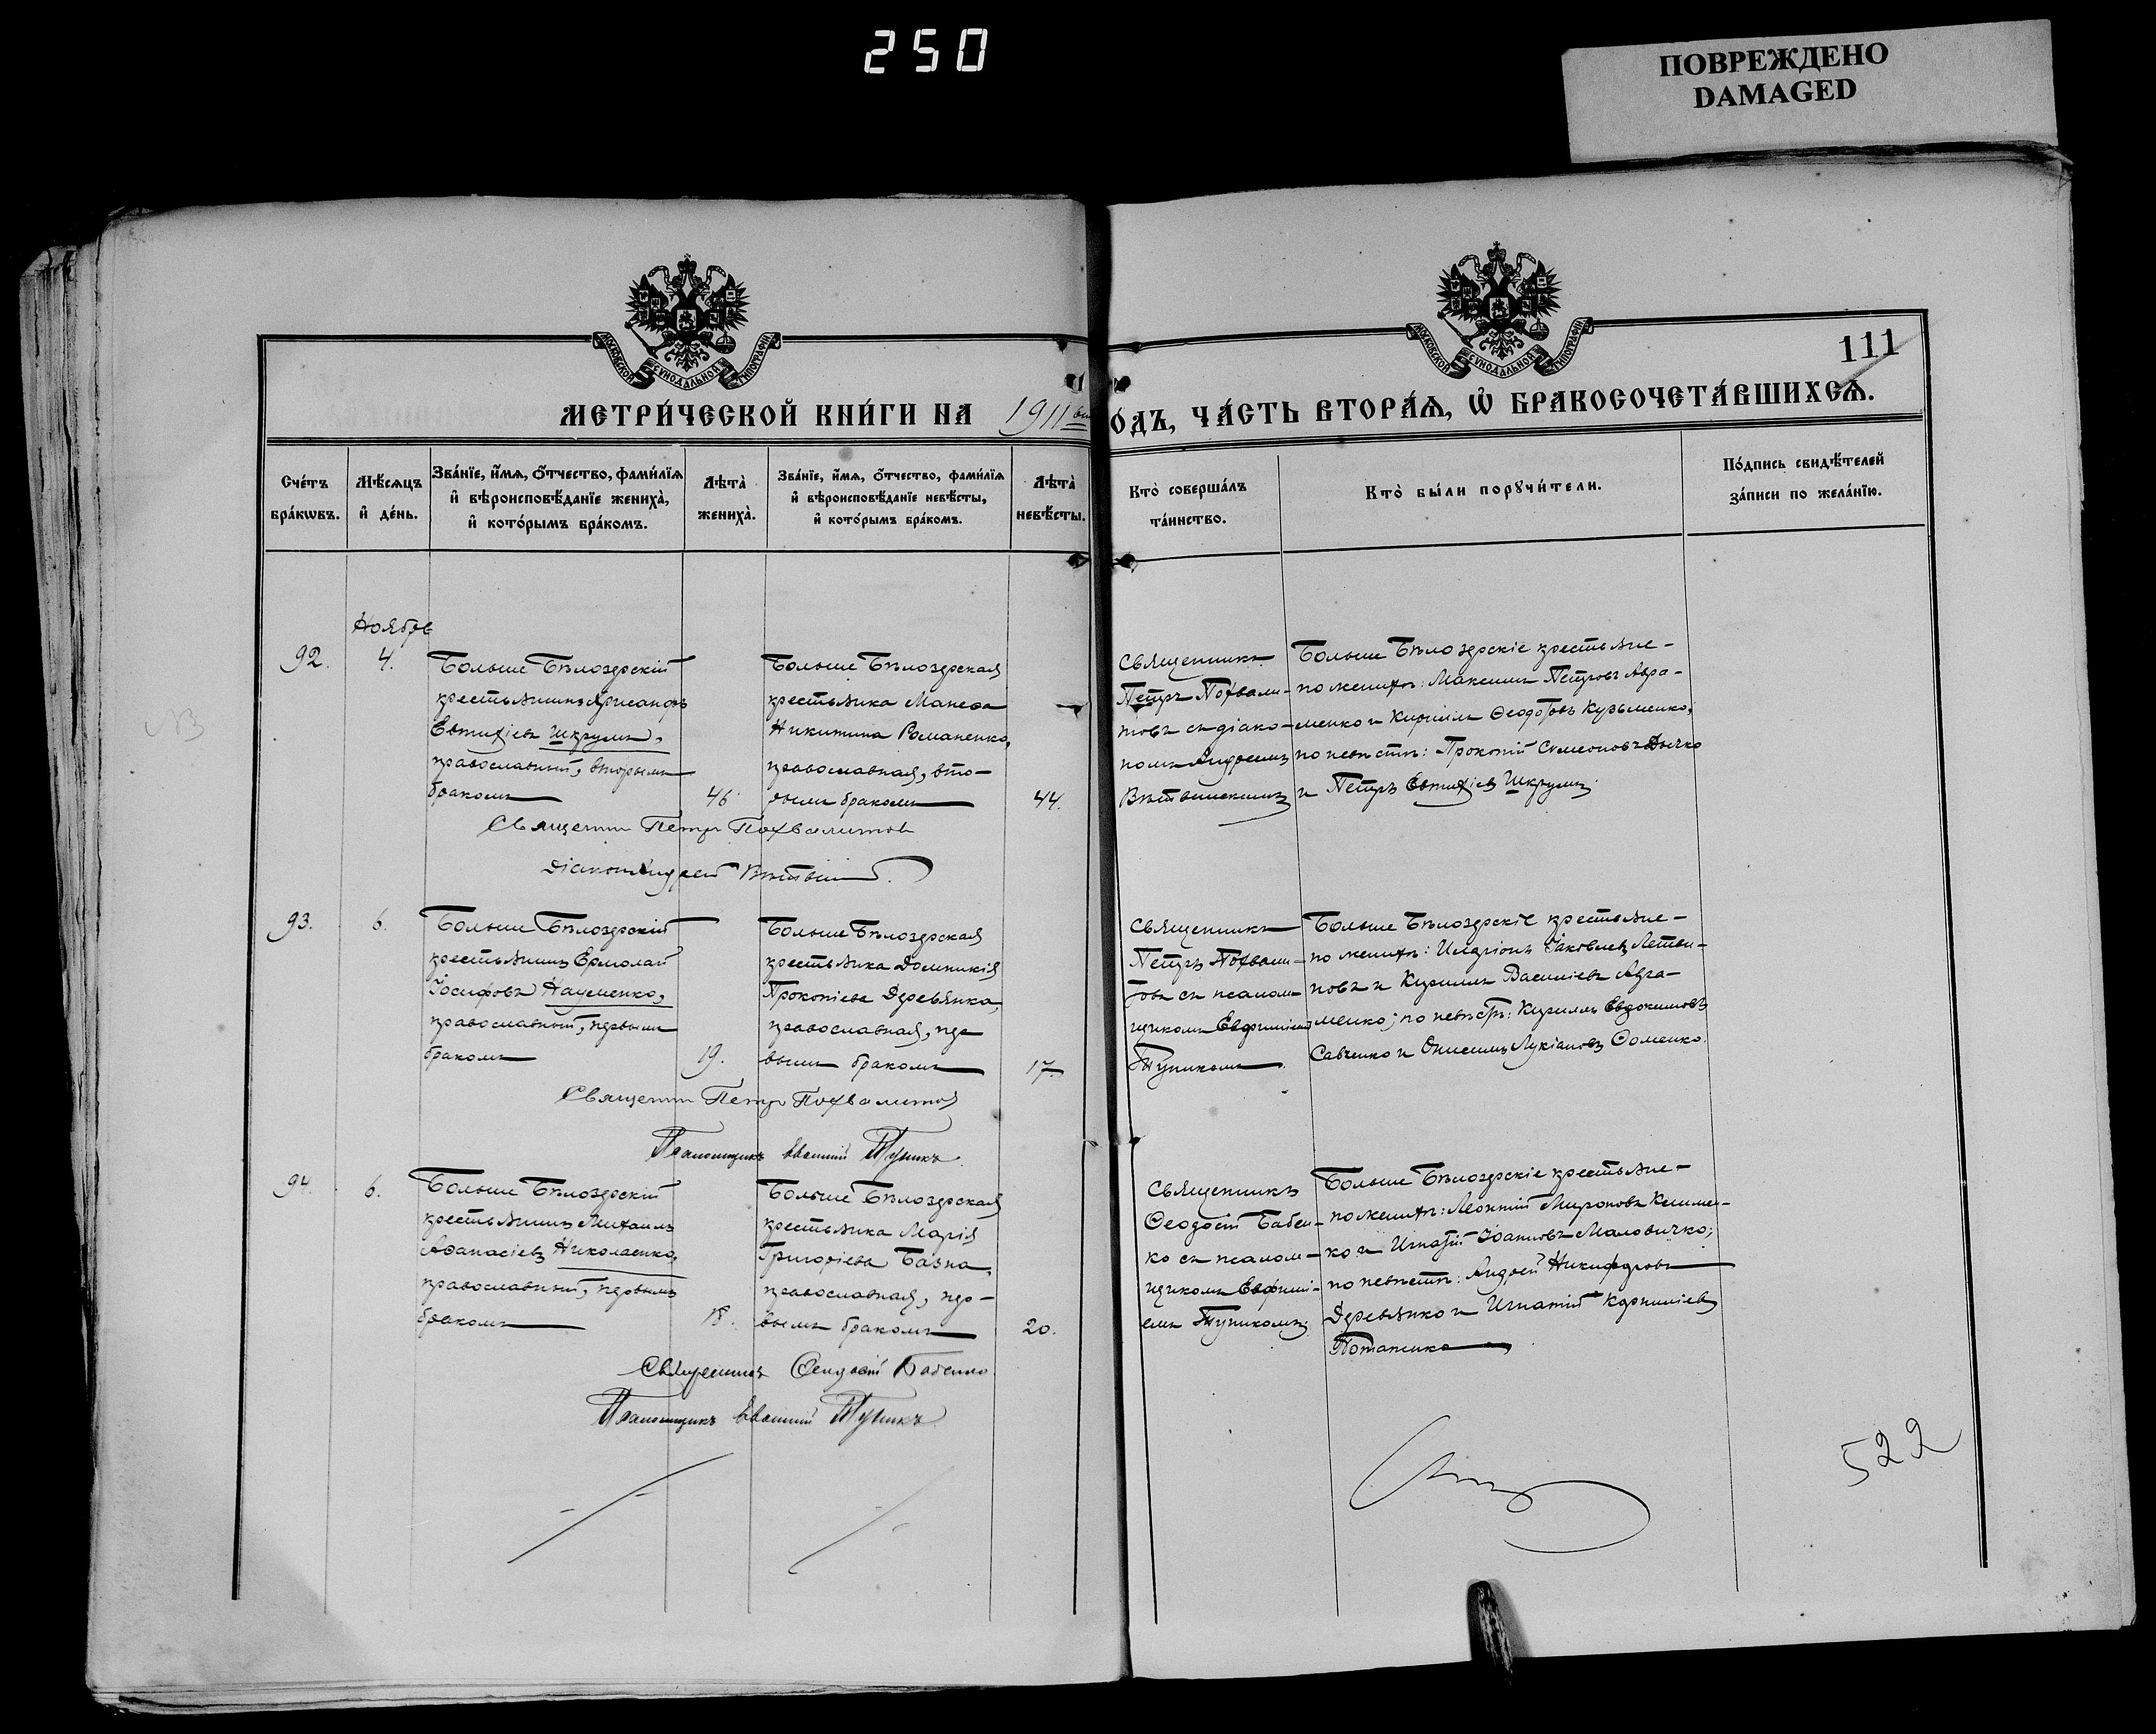 250
ПОВРЕЖДЕНО
DAMAGED
МОСКОВСКОЙ СѴНОДАЛЬНОЙ ТИПОГРАФІИ
МОСКОВСКОЙ СѴНОДАЛЬНОЙ ТИПОГРАФІИ
111
МЕТРИ́ЧЕСКОЙ КНИ́ГИ НА 1911
О́ДЪ, ЧА́СТЬ ВТОРА́Я, Ѡ҆ БРАКОСОЧЕТА́ВШИХСЯ.
Сче́тъ бра́кѡвъ.
Мѣ́сяцъ и҆ де́нь.
Зва́нїе, и҆́мя, ѻ҆́тчество, фами́лїя и҆ вѣроисповѣ́данїе жениха̀, и҆ кото́рымъ бра́комъ.
Лѣта̀ жениха̀.
Зва́нїе, и҆́мя, ѻ҆́тчество, фами́лїя и҆ вѣроисповѣ́данїе невѣ́сты, и҆ кото́рымъ бра́комъ.
Лѣта̀ невѣ́сты.
Кто̀ соверша́лъ та́инство.
Кто̀ бы́ли порꙋчи́тели.
По́дпись свидѣ́телей за́писи по жела́нїю.
92.
Ноябрь
4.
Больше Бѣлозерскій
крестьянинъ
Евтихіевъ Шкрумъ,
православный, вторымъ
бракомъ
46
Больше Бѣлозерская
крестьянка Манефа
Никитина Романенко,
православная, вто-
рымъ бракомъ
44.
Священникъ
Петръ Похвали-
товъ съ діако-
номъ Андреемъ
Больше Бѣлозерскіе крестьяне-
по женихѣ: Максимъ Петровъ Авра-
менко и Кириллъ Ѳеодотовъ Кузьменко;
по невѣстѣ: Прокопій Симеоновъ Дычко
и Петръ Евтихіевъ Шкрумъ.
Священникъ Петръ Похвалитовъ
Діаконъ Андрей
93.
6.
Больше Бѣлозерскій
крестьянинъ Ермолай
Іосифовъ Науменко,
православный, первымъ
бракомъ
19.
Больше Бѣлозерская
крестьянка Домникія
Прокопіева Деревянка,
православная, пер
вымъ бракомъ
17.
Священникъ
Петръ Похвали-
товъ съ псалом-
щикомъ Евфиміемъ
Тупикомъ.
Больше Бѣлозерскіе крестьяне-
по женихѣ: Иларіонъ Іаковлевъ Летви-
новъ и Кириллъ Василіевъ Авра-
менко; по невѣстѣ: Кириллъ Евдокимовъ
Савченко и Онисимъ Лукіановъ Ѳоменко.
Священникъ Петръ Похвалитовъ
Псаломщикъ Евѳимій Тупикъ.
94.
6.
Больше Бѣлозерскій
крестьянинъ Михаилъ
Аѳанасіевъ Николаенко,
православный, первымъ
бракомъ
18.
Больше Бѣлозерская
крестьянка Марія
Григоріева Базна,
православная, пер-
вымъ бракомъ
20.
Священникъ
Ѳеодосій Бабен-
ко съ псалом-
щикомъ Евфимі-
емъ Тупикомъ.
Больше Бѣлозерскіе крестьяне-
по женихѣ: Леонтій Мироновъ
ко и Игнатій Іоанновъ Маловичко;
по невѣстѣ: Андрей Никифоровъ
Деревянко и Игнатій Корниліевъ
Потапенко
Священникъ Ѳеодосій Бабенко.
Псаломщикъ Евѳимій Тупикъ.
522